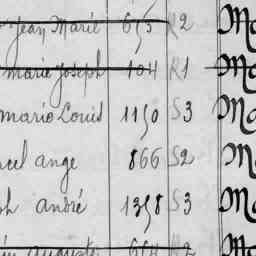 Jean Marie 695 R2 Ma
marie Joseph 104 R1 Ma
mario Louis 1190 S3 Ma
cel ange 866 S2 M
ph andré 1398 S3 Ma
auguste 694 R2 Ma